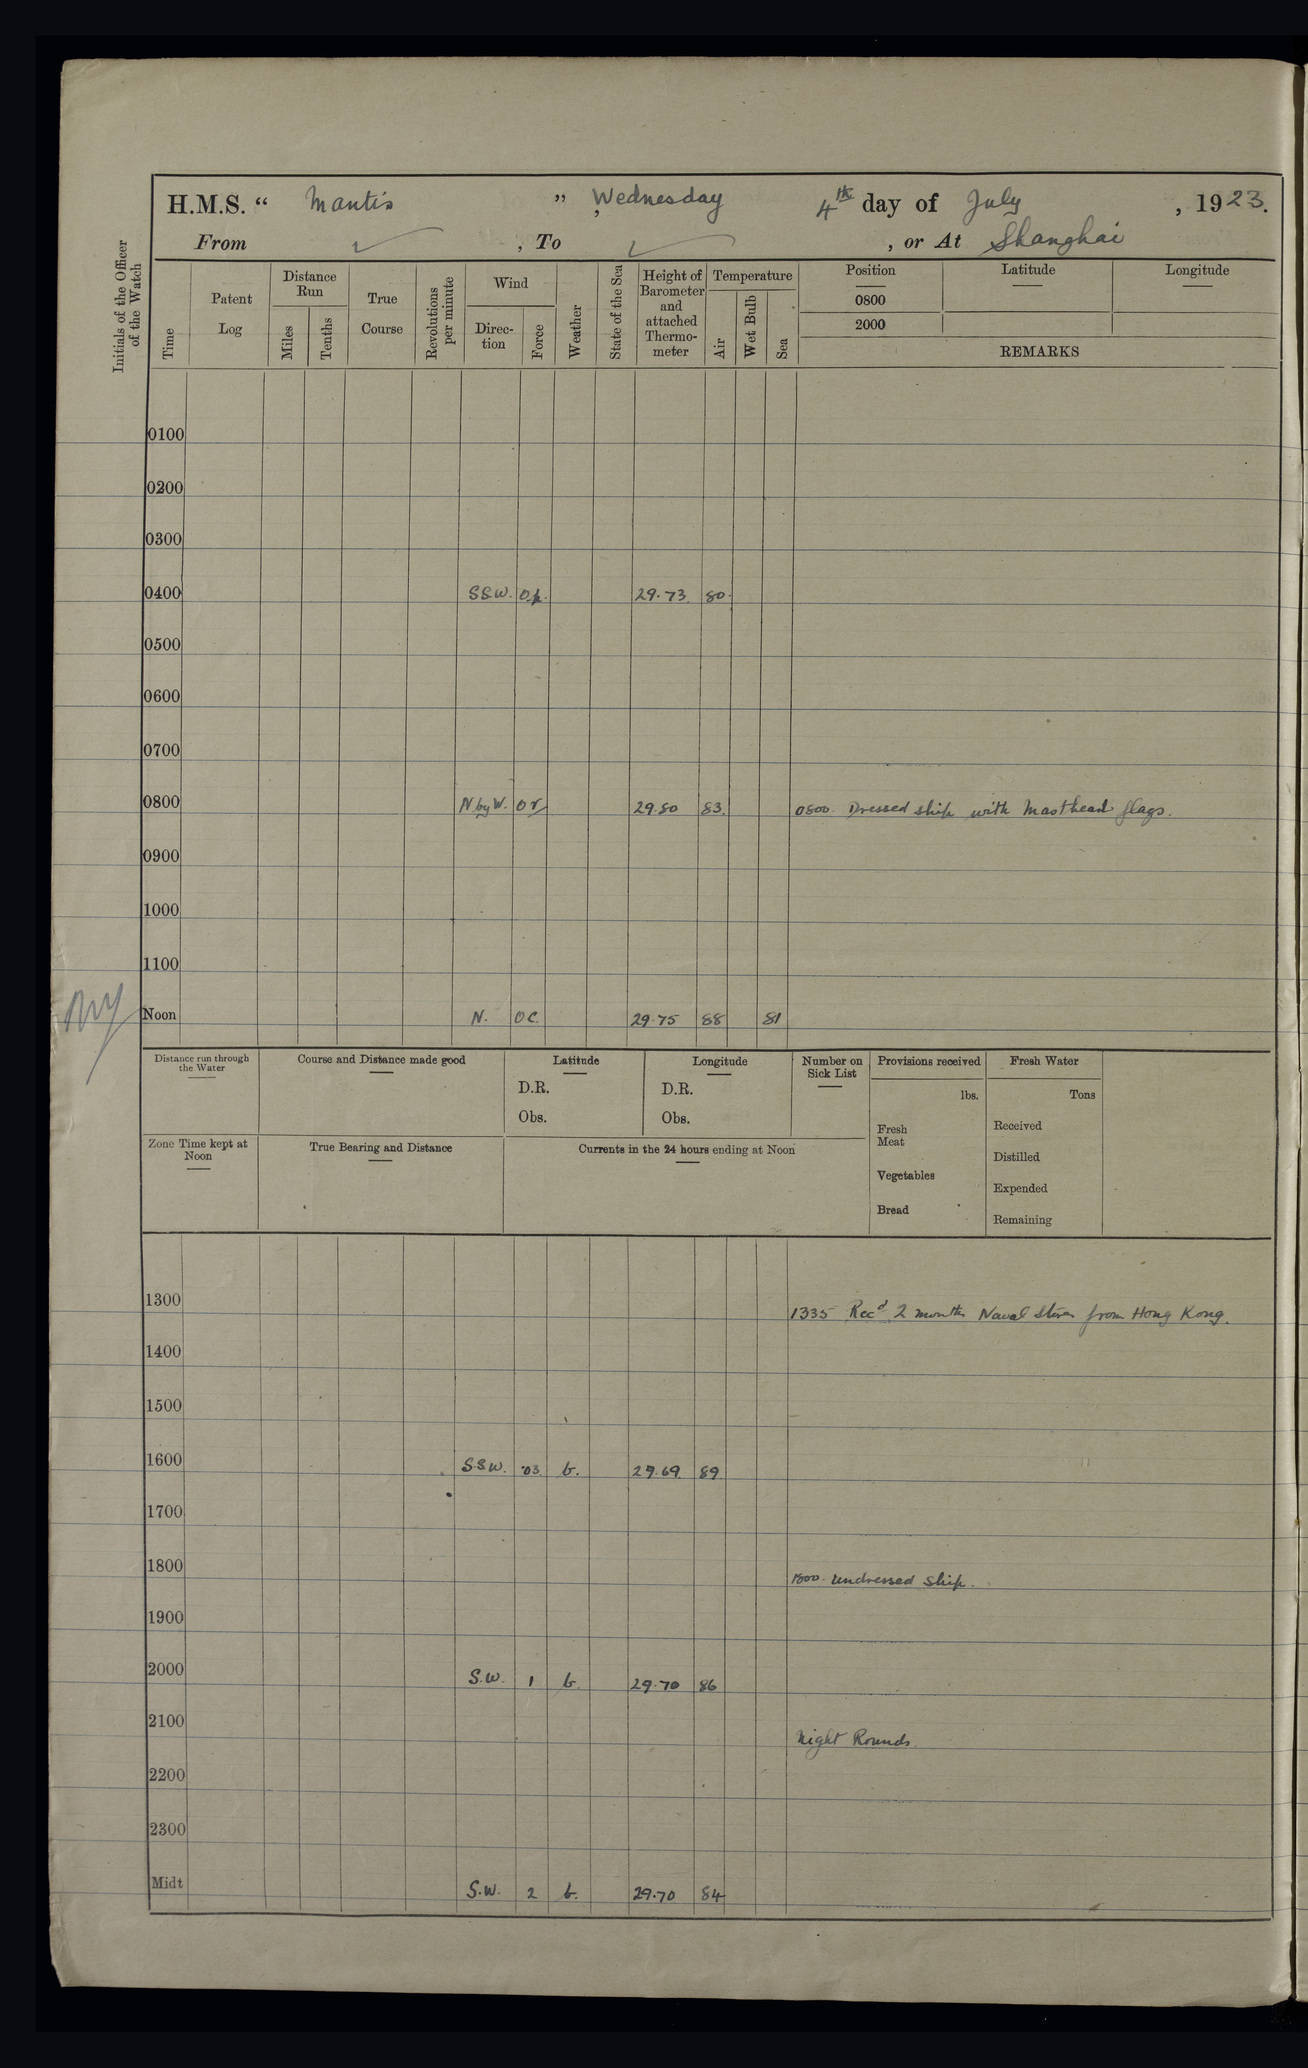 H.M.S. “ Mantis ”, Wednesday 4th day of July, 1923.
From ✓, To ✓, or At Shanghai
Initials of the Officer of the Watch
Time
Patent Log
Distance Run
Miles
Tenths
True Course
Revolutions per minute
Wind
Direc-tion
Force
Weather
State of the Sea
Height of Barometer and attached Thermo-meter
Temperature
Air
Wet Bulb
Sea
Position
Latitude
Longitude
0800
2000
REMARKS
0100
0200
0300
0400 S.S.W. 29.73 80.
0500
0600
0700
0800 N by W. 29.80 83. 0800. Dressed ship with Masthead flags.
0900
1000
1100
Noon N. O C. 29.75 88 81
Distance run through the Water
Course and Distance made good
Latitude
D.R.
Obs.
Longitude
D.R.
Obs.
Number on Sick List
Provisions received
lbs.
Fresh Meat
Vegetables
Bread
Fresh Water
Tons
Received
Distilled
Expended
Remaining
Zone Time kept at Noon
True Bearing and Distance
Currents in the 24 hours ending at Noon
1300 1335 Recd 2 months Naval Stores from Hong Kong.
1400
1500
1600 S.S.W. 03 b. 29.69 89
1700
1800 1800. Undressed Ship.
1900
2000 S.W. 1 b. 29.70 86
2100 Night Rounds.
2200
2300
Midt S.W. 2 b. 29.70 84